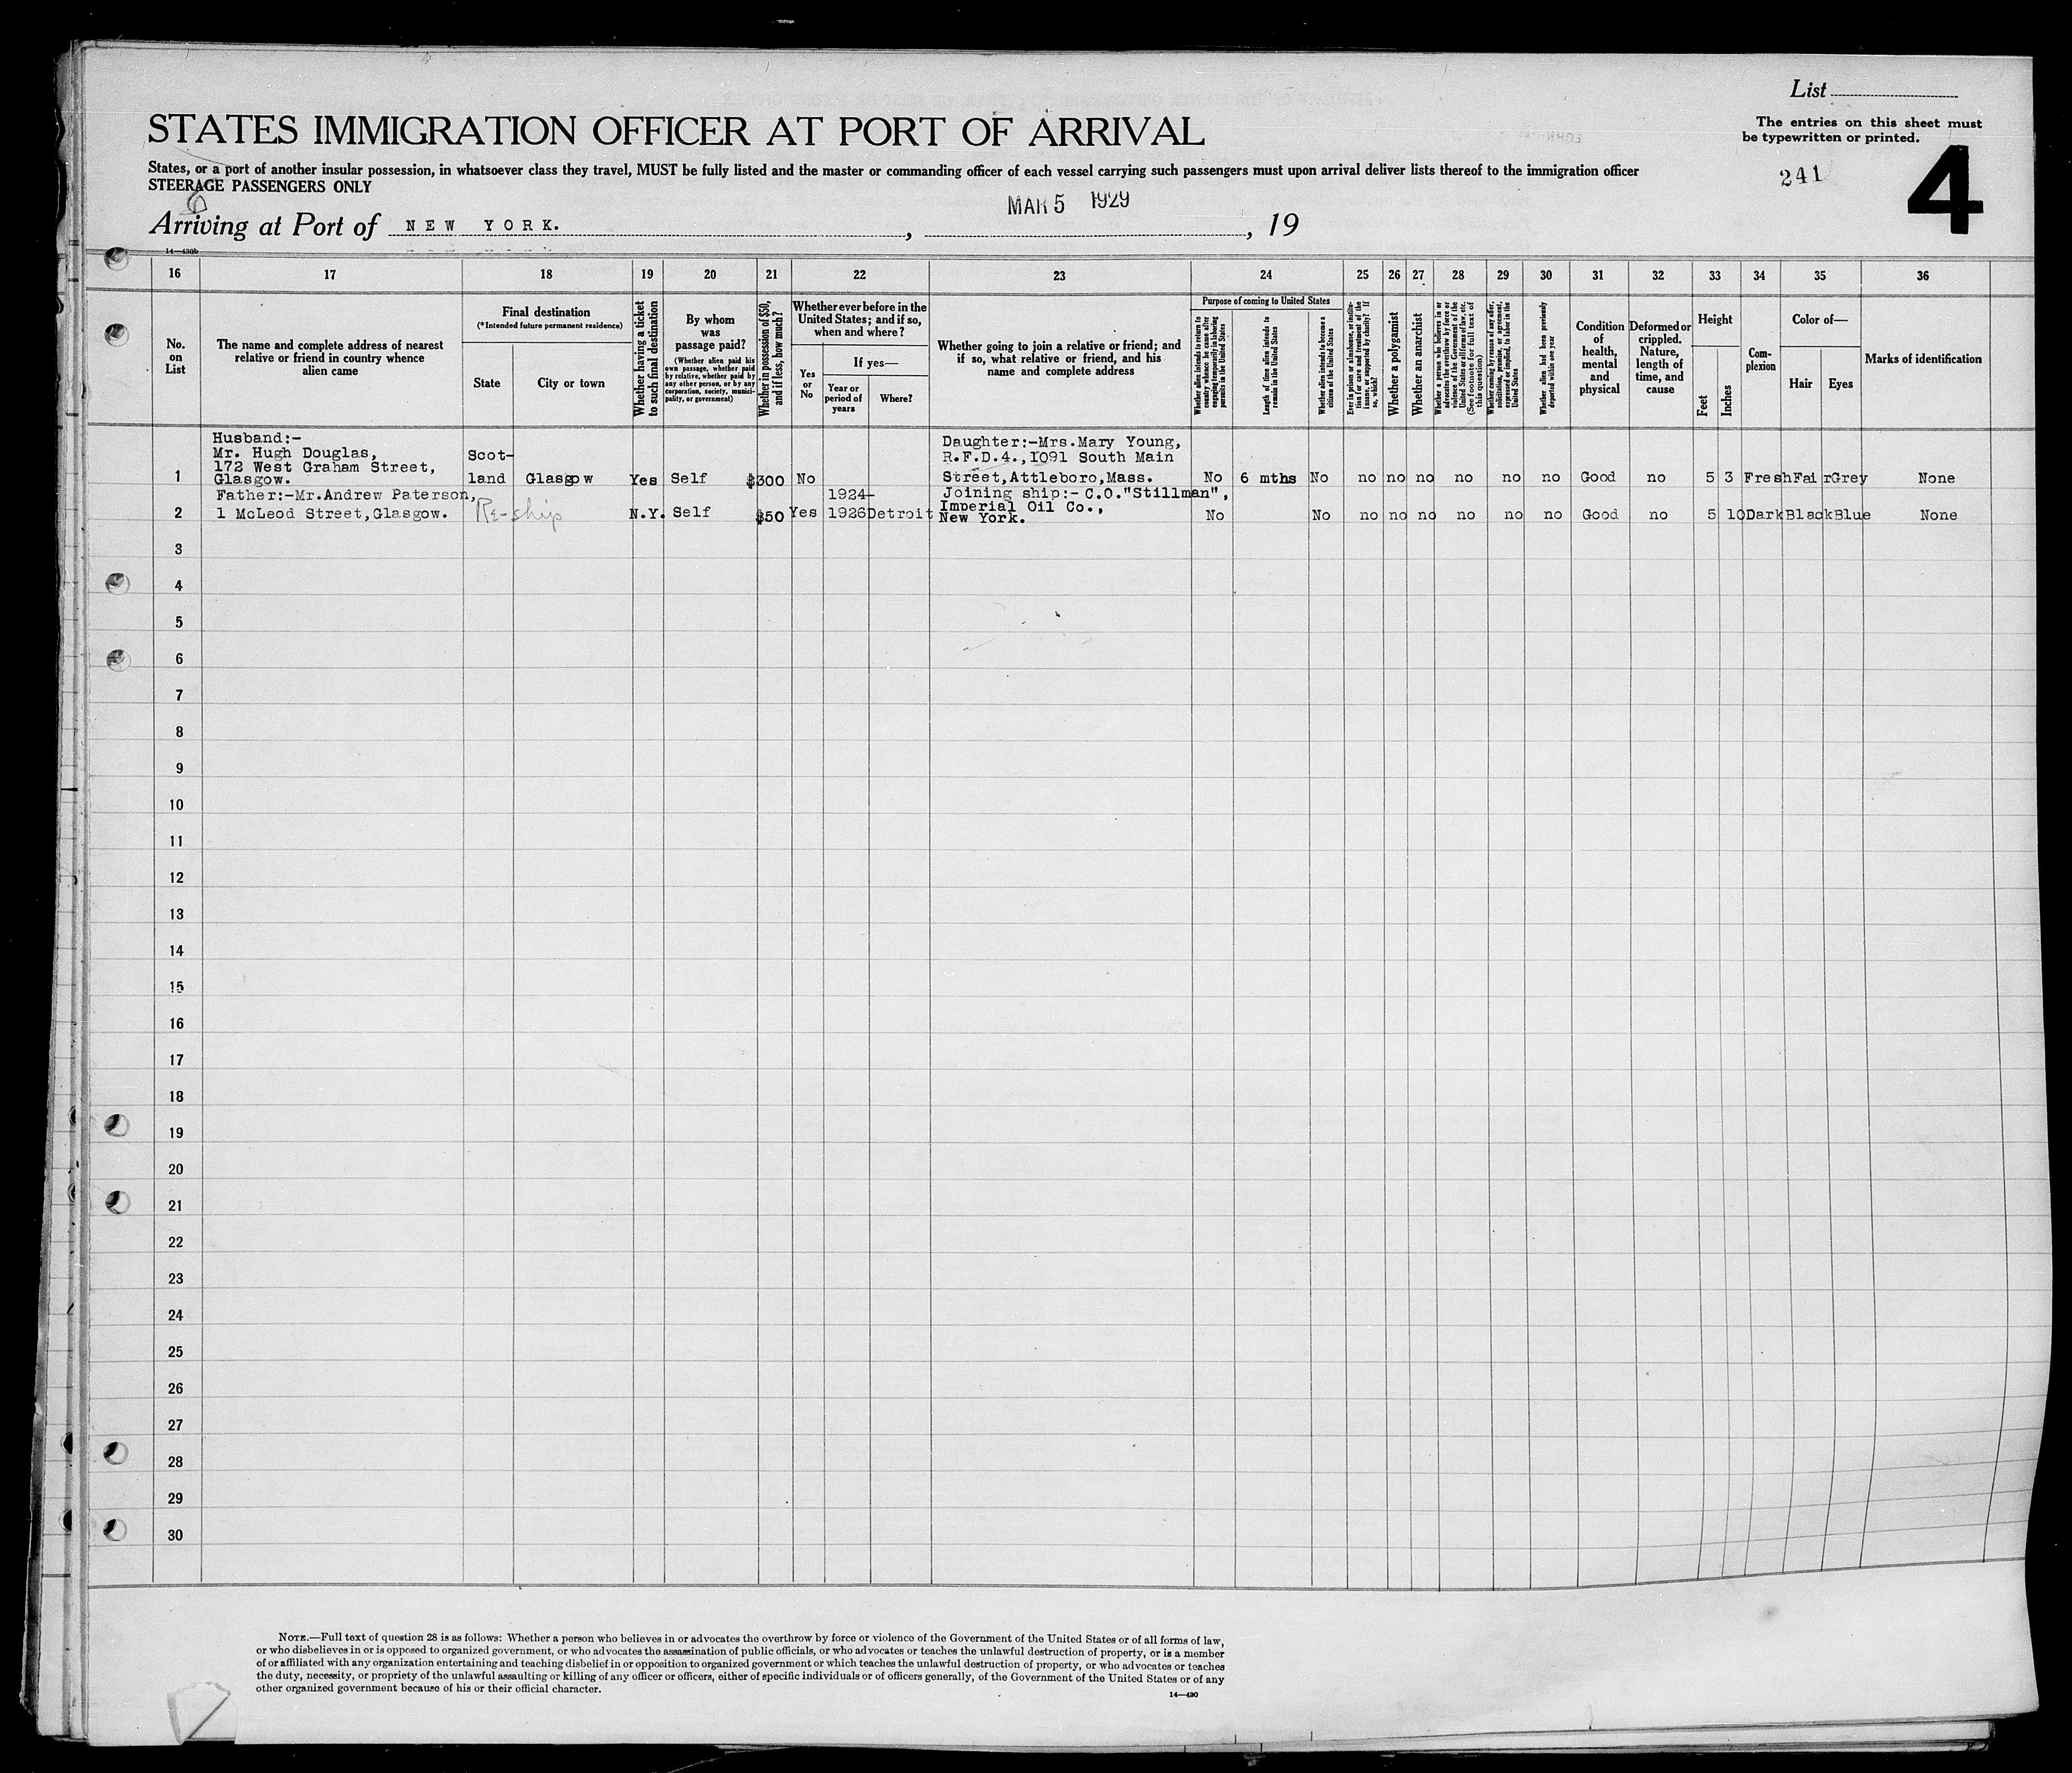 List
The entries on this sheet must
be typewritten or printed.
241
4
STATES IMMIGRATION OFFICER AT PORT OF ARRIVAL
States, or a port of another insular possession, in whatsoever class they travel, MUST be fully listed and the master or commanding officer of each vessel carrying such passengers must upon arrival deliver lists thereof to the immigration officer
STEERAGE PASSENGERS ONLY
Arriving at Port of NEW YORK. , MAR 5 1929 , 19
14—430b
16 17 18 19 20 21 22 23 24 25 26 27 28 29 30 31 32 33 34 35 36
No.
on
List
The name and complete address of nearest
relative or friend in country whence
alien came
Final destination
(*Intended future permanent residence)
State
City or town
Whether having a ticket
to such final destination
By whom
was
passage paid?
(Whether alien paid his
own passage, whether paid
by relative, whether paid by
any other person, or by any
corporation, society, munici-
pality, or government)
Whether in possession of $50,
and if less, how much?
Whether ever before in the
United States; and if so,
when and where?
Yes
or
No
If yes—
Year or
period of
years
Where?
Whether going to join a relative or friend; and
if so, what relative or friend, and his
name and complete address
Purpose of coming to United States
Whether alien intends to return to
country whence he came after
engaging temporarily in laboring
pursuits in the United States
Length of time alien intends to
remain in the United States
Whether alien intends to become a
citizen of the United States
Ever in prison or almshouse, or institu-
tion for care and treatment of the
insane, or supported by charity? If
so, which?
Whether a polygamist
Whether an anarchist
Whether a person who believes in or
advocates the overthrow by force or
violence of the Government of the
United States or all forms of law, etc.
(See footnote for full text of
this question)
Whether coming by reason of any offer,
solicitation, promise, or agreement,
expressed or implied, to labor in the
United States
Whether alien had been previously
deported within one year
Condition
of
health,
mental
and
physical
Deformed or
crippled.
Nature,
length of
time, and
cause
Height
Feet
Inches
Com-
plexion
Color of—
Hair
Eyes
Marks of identification
Husband:-
Mr. Hugh Douglas,
172 West Graham Street,
Glasgow.
1 Scot-
land Glasgow Yes Self $300 No
Daughter:-Mrs.Mary Young,
R.F.D.4.,1091 South Main
Street,Attleboro,Mass.
No 6 mths No no no no no no no Good no 5 3 Fresh Fair Grey None
Father:-Mr.Andrew Paterson,
2 1 McLeod Street,Glasgow.
Re-ship N.Y. Self $50 Yes 1924-
1926 Detroit
Joining ship:- C.O."Stillman",
Imperial Oil Co.,
New York.
No No no no no no no no Good no 5 10 Dark Black Blue None
3
4
5
6
7
8
9
10
11
12
13
14
15
16
17
18
19
20
21
22
23
24
25
26
27
28
29
30
NOTE.—Full text of question 28 is as follows: Whether a person who believes in or advocates the overthrow by force or violence of the Government of the United States or of all forms of law,
or who disbelieves in or is opposed to organized government, or who advocates the assassination of public officials, or who advocates or teaches the unlawful destruction of property, or is a member
of or affiliated with any organization entertaining and teaching disbelief in or opposition to organized government or which teaches the unlawful destruction of property, or who advocates or teaches
the duty, necessity, or propriety of the unlawful assaulting or killing of any officer or officers, either of specific individuals or of officers generally, of the Government of the United States or of any
other organized government because of his or their official character.
14—430